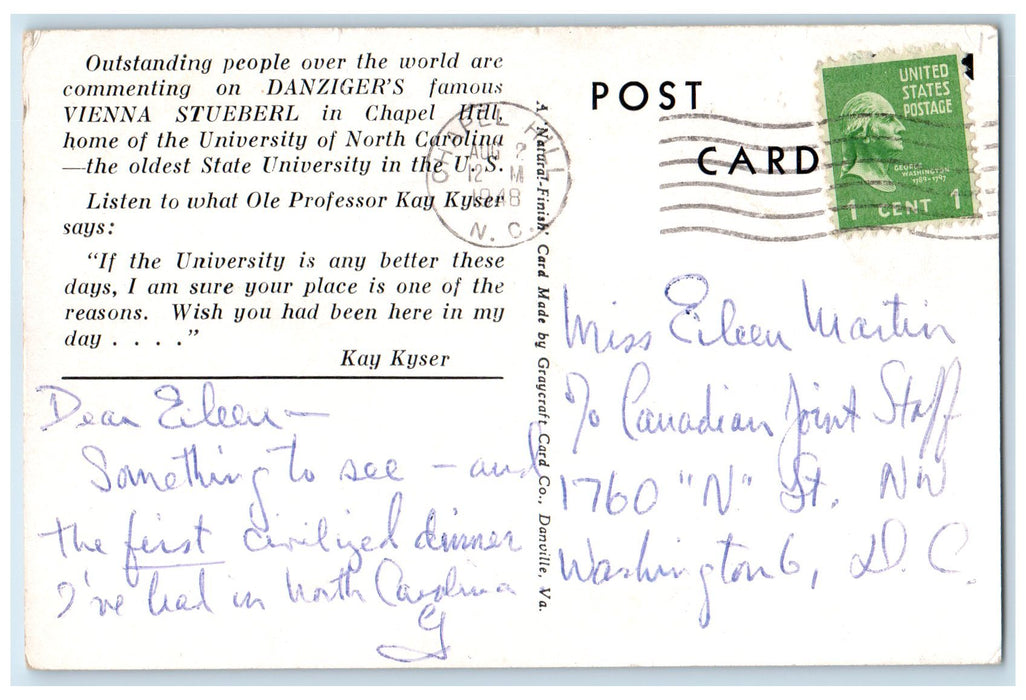 Outstanding people over the world are
commenting on DANZIGER'S famous
VIENNA STUEBERL in Chapel Hill,
home of the University of North Carolina
—the oldest State University in the U. S.
Listen to what Ole Professor Kay Kyser
says:
"If the University is any better these
days, I am sure your place is one of the
reasons. Wish you had been here in my
day . . . ."
Kay Kyser
Dear Eileen —
Something to see — and
the first civilized dinner
I've had in North Carolina
G
A 'Natural-Finish' Card Made by Graycraft Card Co., Danville, Va.
POST
CARD
CHAPEL HILL
AUG 2
12 M
1948
N. C.
UNITED
STATES
POSTAGE
GEORGE
WASHINGTON
1789-1797
1 CENT 1
Miss Eileen Martin
c/o Canadian Joint Staff
1760 "N" St. NW
Washington 6, D. C.